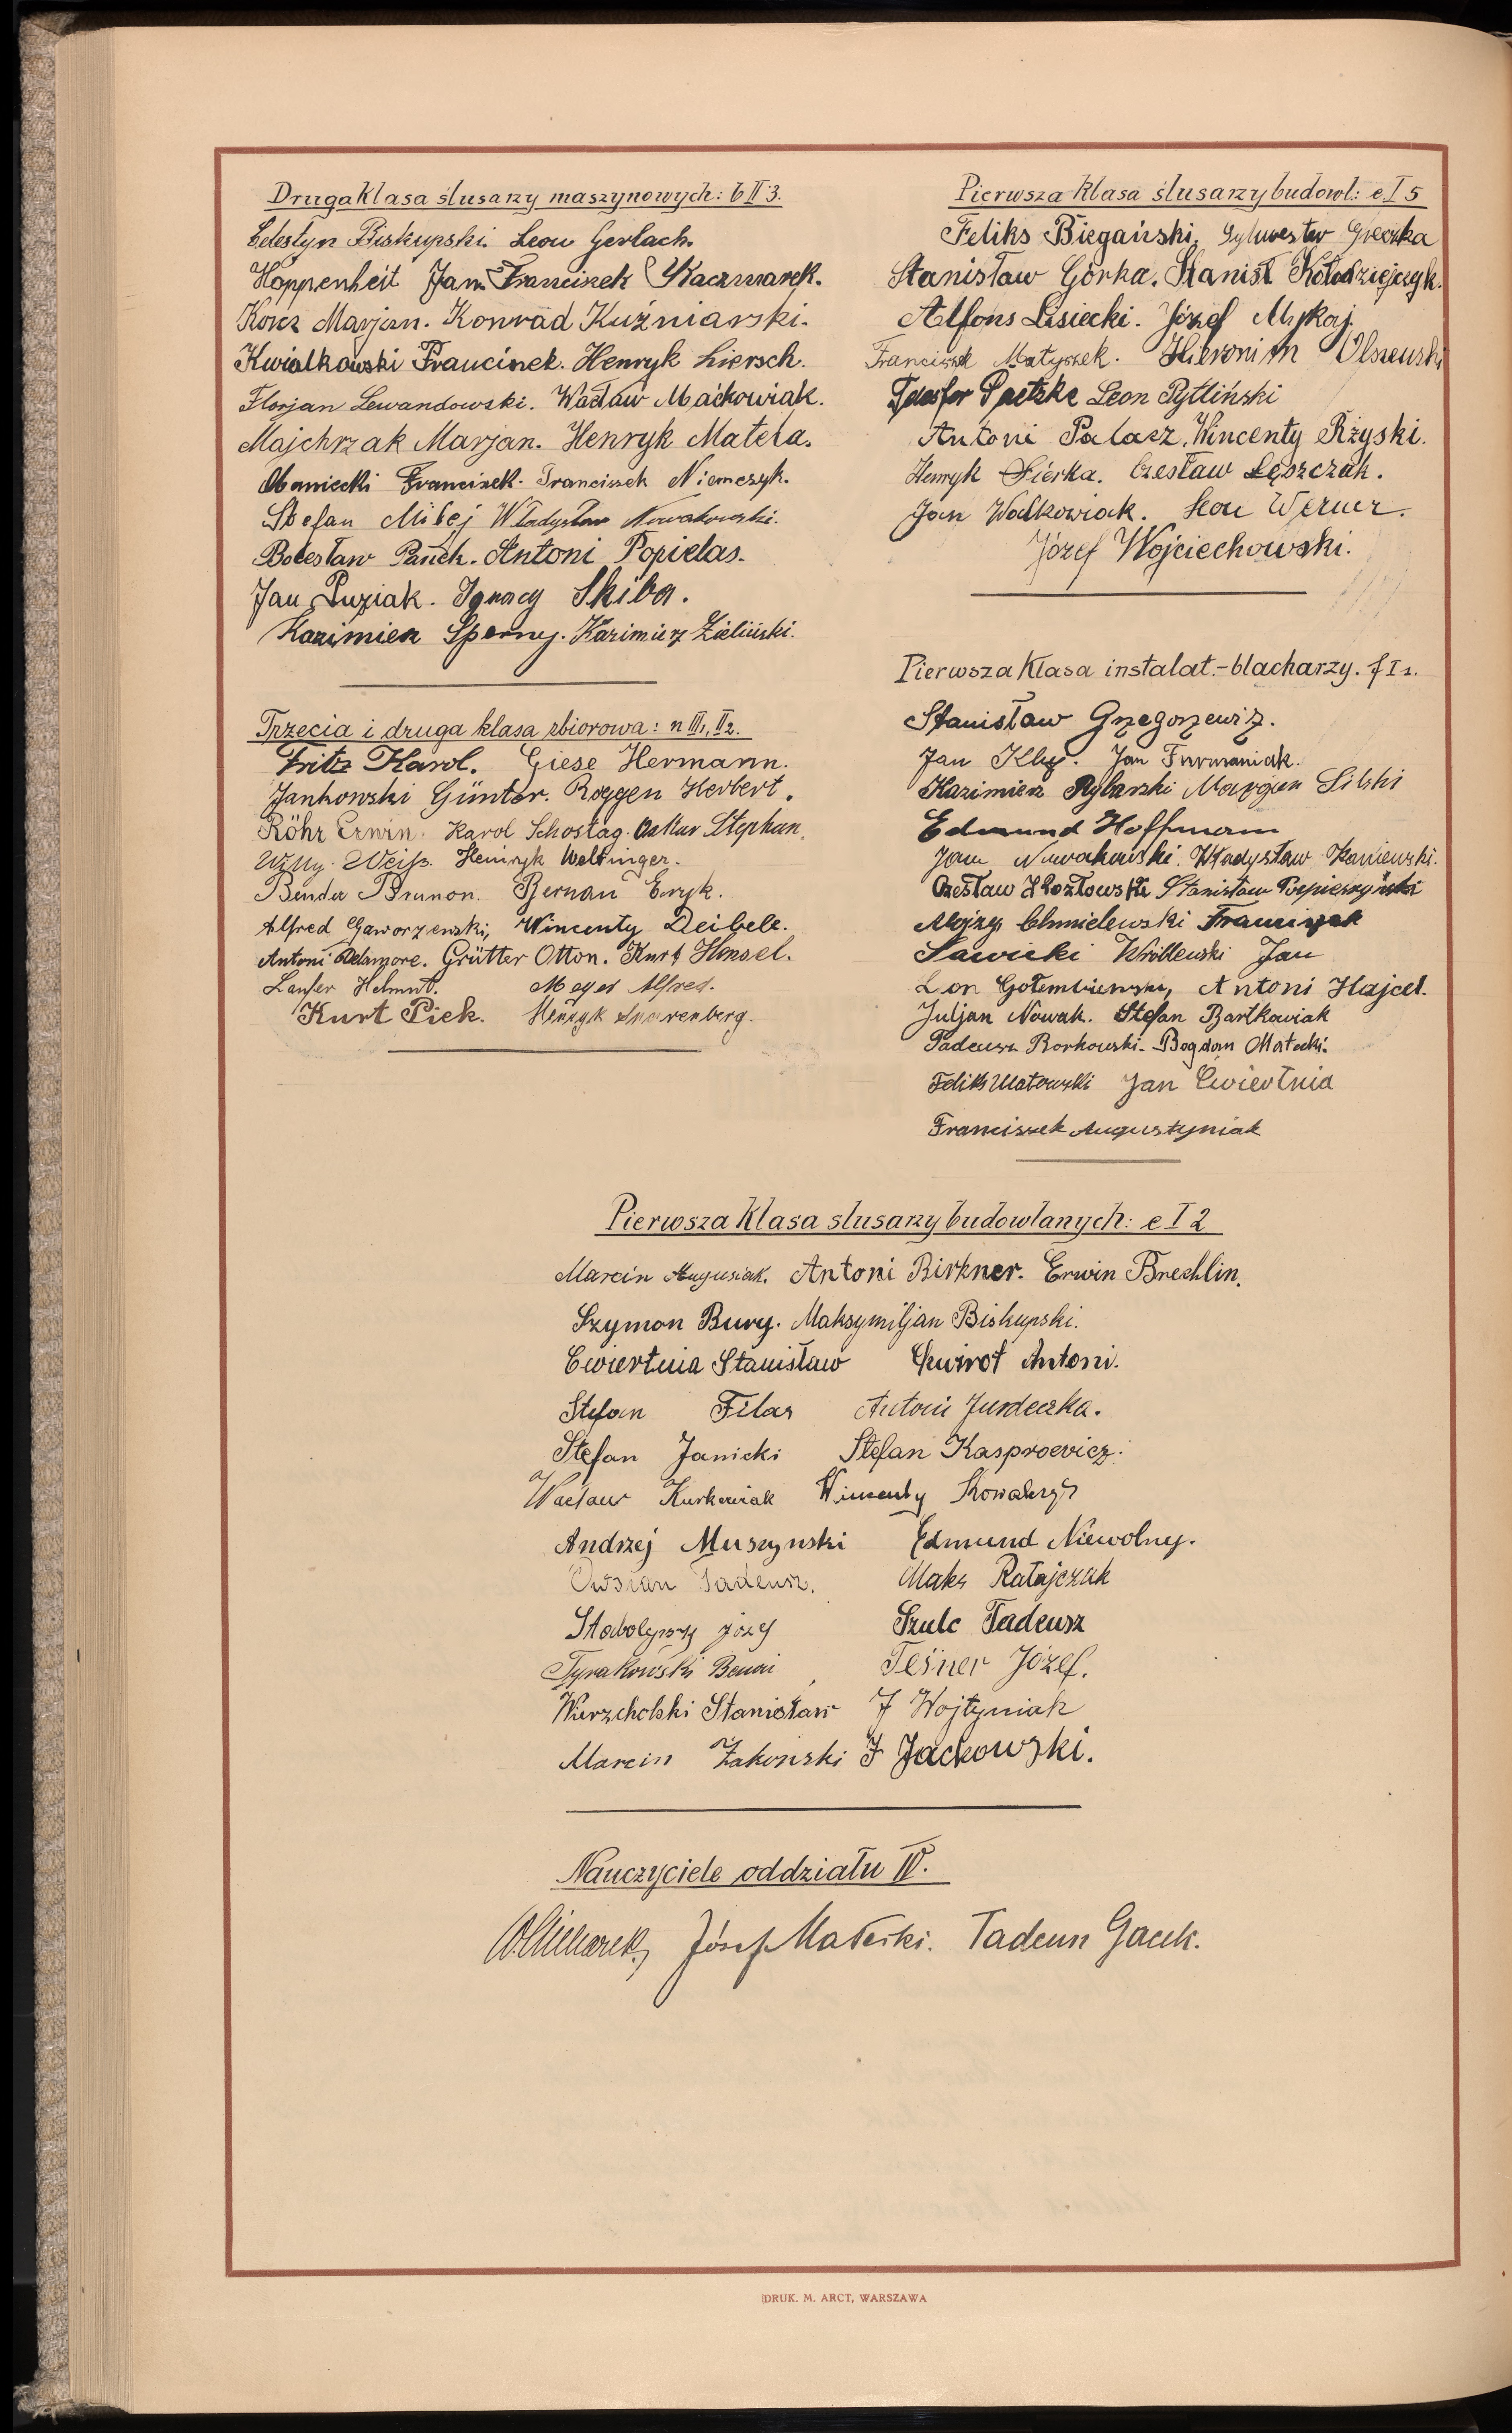 Druga klasa ślusarzy maszynowych: b II 3.
Celestyn Biskupski. Leon Gerlach.
Hoppenheit Jan. Franciszek Kaczmarek.
Korcz Marjan. Konrad Kuźniarski.
Kwiatkowski Franciszek. Henryk Liersch.
Florjan Lewandowski. Wacław Maćkowiak.
Majchrzak Marjan. Henryk Matela.
Franciszek. Franciszek Niemczyk.
Stefan Mikej Władysław Nowakowski.
Bolesław Panek. Antoni Popielas.
Jan Puziak. Ignacy Skiba.
Kazimierz Sperny. Kazimierz Zieliński.
Trzecia i druga klasa zbiorowa: n III1, II2.
Fritz Karol. Giese Hermann.
Jankowski Günter. Roggen Herbert.
Röhr Erwin. Karol Schostag. Oskar Stephan.
Willy Weiß. Henryk Welfinger.
Bender Brunon. Bernau Eryk.
Alfred Gaworzewski, Wincenty Deibele.
Antoni Delamore. Grütter Otton. Kurt Hensel.
Laufer Helmut. Meyer Alfred.
Kurt Piek. Henryk
Pierwsza klasa ślusarzy budowl: e I 5
Feliks Biegański, Sylwester Greczka
Stanisław Górka. Stanisł Kołodziejczyk.
Alfons Lisiecki. Józef Mykaj.
Franciszek Matyszek. Hieronim Olszewski
Telesfor Paetzke Leon Pytliński
Antoni Palacz. Wincenty Rżyski.
Henryk Sierka. Czesław Łęszczak.
Jan Walkowiak. Leon Werner.
Józef Wojciechowski.
Pierwsza klasa instalat.-blacharzy. f I 1.
Stanisław Grzegorzewicz.
Jan Jan Furmaniak.
Kazimierz Rybarski Marjan Silski
Edmund Hoffmann
Jan Nowakowski. Władysław Kaniewski.
Czesław Kozłowski Stanisław
Alojzy Chmielewski Franciszek
Sawicki Wróblewski Jan
Leon Gołembiewski, Antoni Hajcel.
Juljan Nowak. Stefan Bartkowiak
Tadeusz Borkowski. Bogdan Małecki.
Feliks Jan Ćwiertnia
Franciszek Augustyniak
Pierwsza klasa slusarzy budowlanych: e I 2
Marcin Augusiak. Antoni Birkner. Erwin Brechlin.
Szymon Bury. Maksymiljan Biskupski.
Ćwiertnia Stanisław Antoni.
Stefan Filar Antoni Jurdeczka.
Stefan Janicki Stefan Kasprowicz.
Wacław Kurkowiak Wincenty Kowalczyk
Andrzej Muszynski Edmund Niewolny.
Owsian Tadeusz. Maks Ratajczak
Józef Szulc Tadeusz
Tyrakowski Benon Teśner Józef.
Wierzcholski Stanisław J Wojtyniak
Marcin Żakowski F Jackowski.
Nauczyciele oddziału IV.
Józef Małecki. Tadeusz Gacek.
DRUK. M. ARCT, WARSZAWA